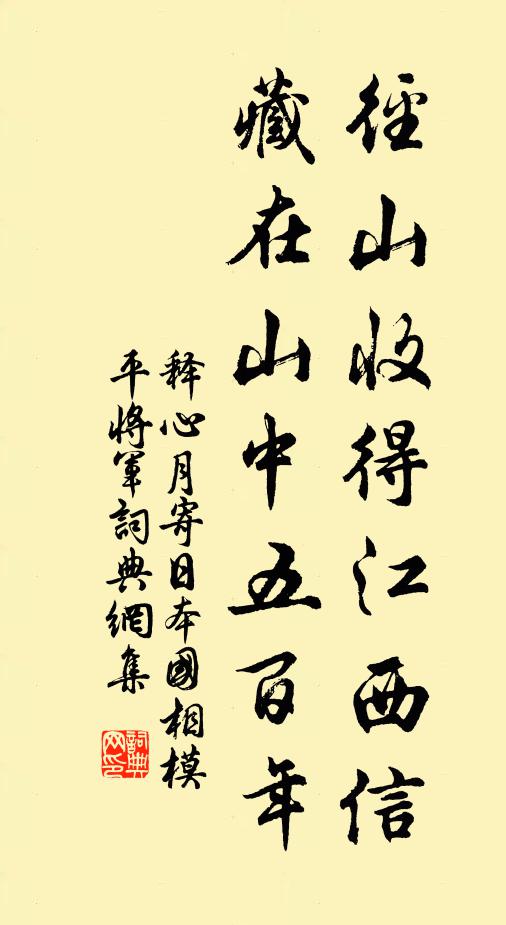 徑山收得江西信
藏在山中五百年
释心月寄日本國相模
平將軍詞典網集
詞典
网印